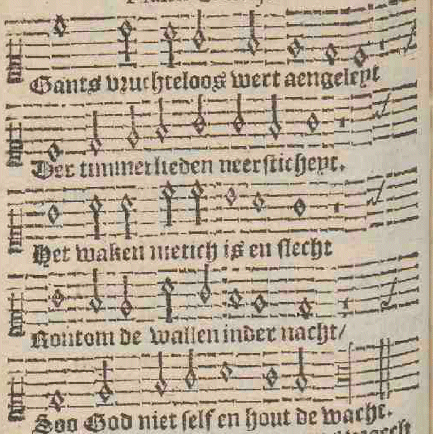 Gants vruchteloos wert aengeleyt
Der timmerlieden neersticheyt.
Het waken nietich is en slecht
Rontom de wallen inder nacht/
Soo God niet self en hout de wacht.